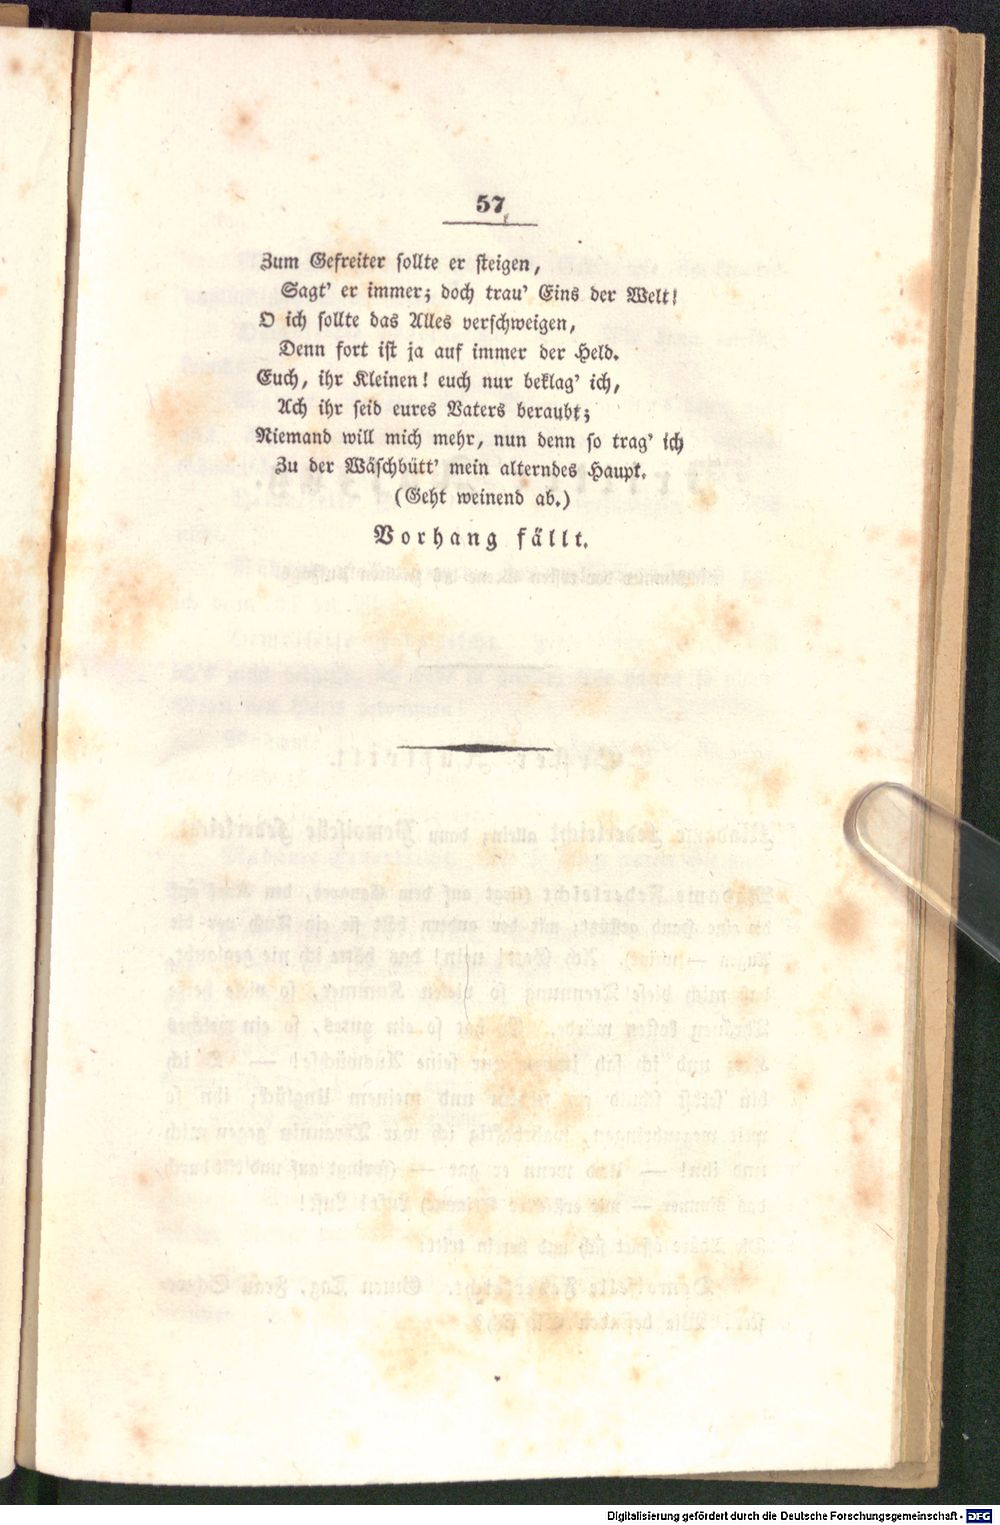 57
Zum Gefreiter sollte er steigen,
Sagt' er immer; doch trau' Eins der Welt!
O ich sollte das Alles verschweigen,
Denn fort ist ja auf immer der Held.
Euch, ihr Kleinen! euch nur beklag' ich,
Ach ihr seid eures Vaters beraubt;
Niemand will mich mehr, nun denn so trag' ich
Zu der Wäschbütt' mein alterndes Haupt.
(Geht weinend ab.)
Vorhang fällt.
Digitalisierung gefördert durch die Deutsche Forschungsgemeinschaft - DFG